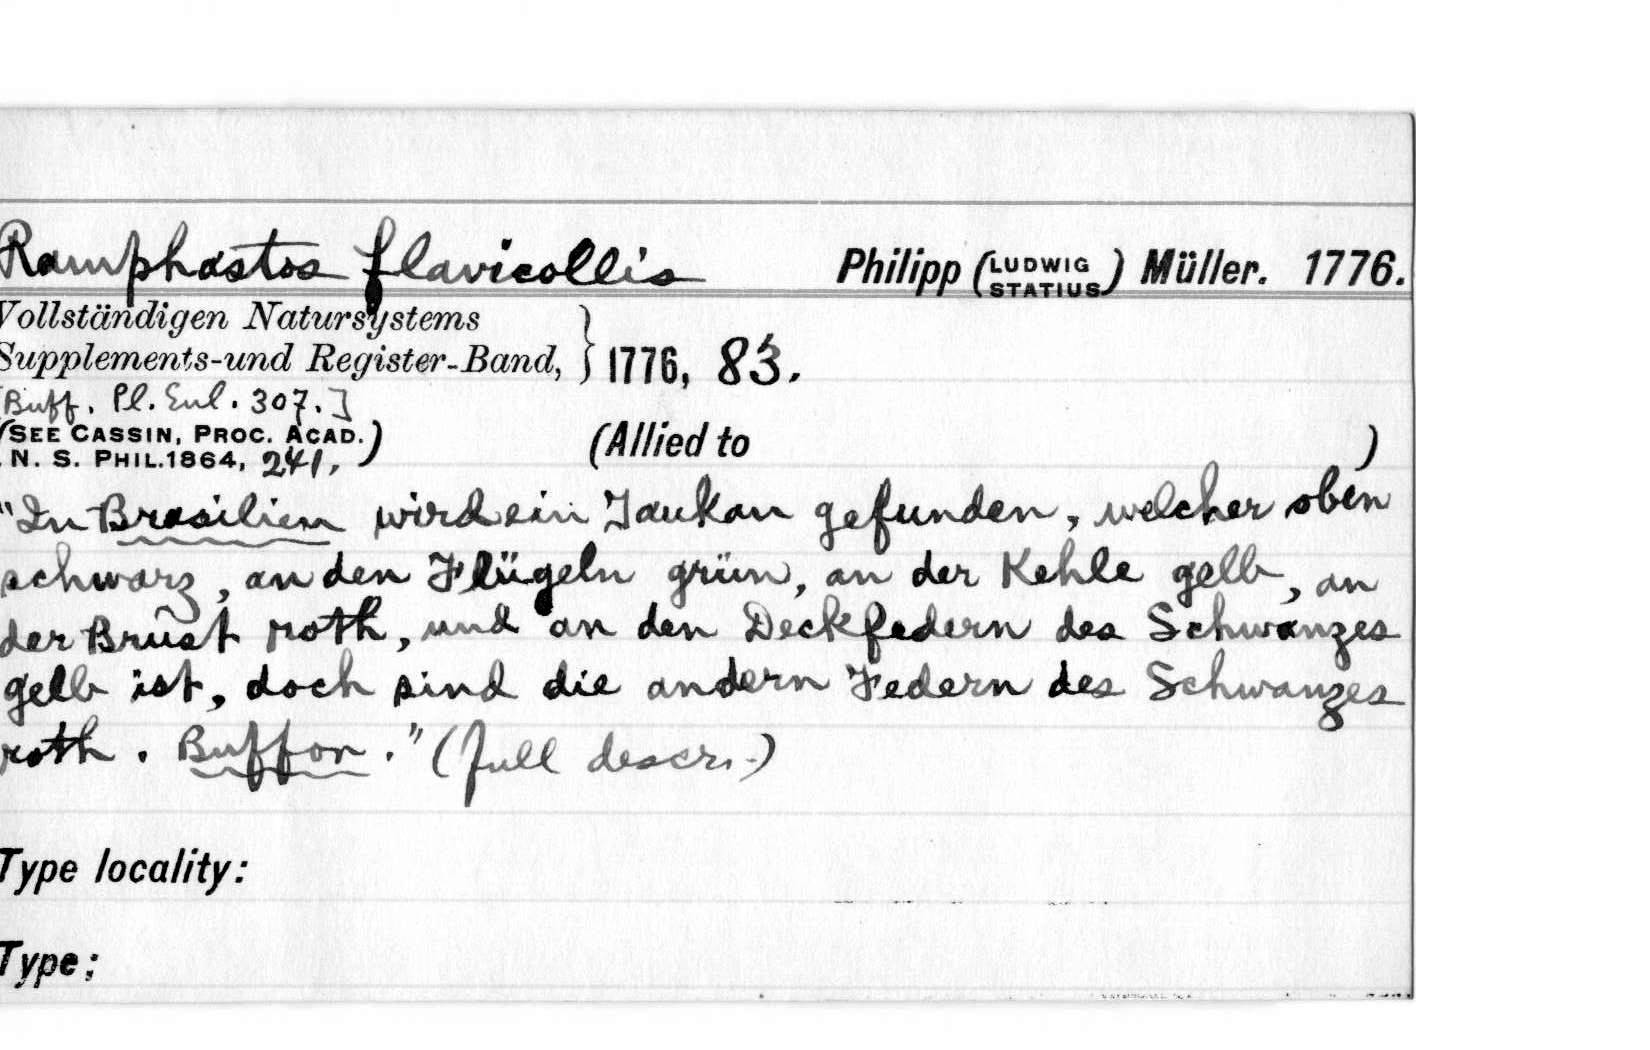 Ramphastos flavicollis Philipp (LUDWIG STATIUS) Müller. 1776.
Vollständigen Natursystems
Supplements-und Register-Band, } 1776, 83.
[Buff. Pl. Enl. 307.]
(SEE CASSIN, PROC. ACAD.
N. S. PHIL. 1864, 241.) (Allied to )
"In Brasilien wird ein Taukan gefunden, welcher oben
schwarz, an den Flügeln grün, an der Kehle gelb, an
der Brust roth, und an den Deckfedern des Schwanzes
gelb ist, doch sind die andern Federn des Schwanzes
roth. Buffon." (full descr.)
Type locality:
Type;